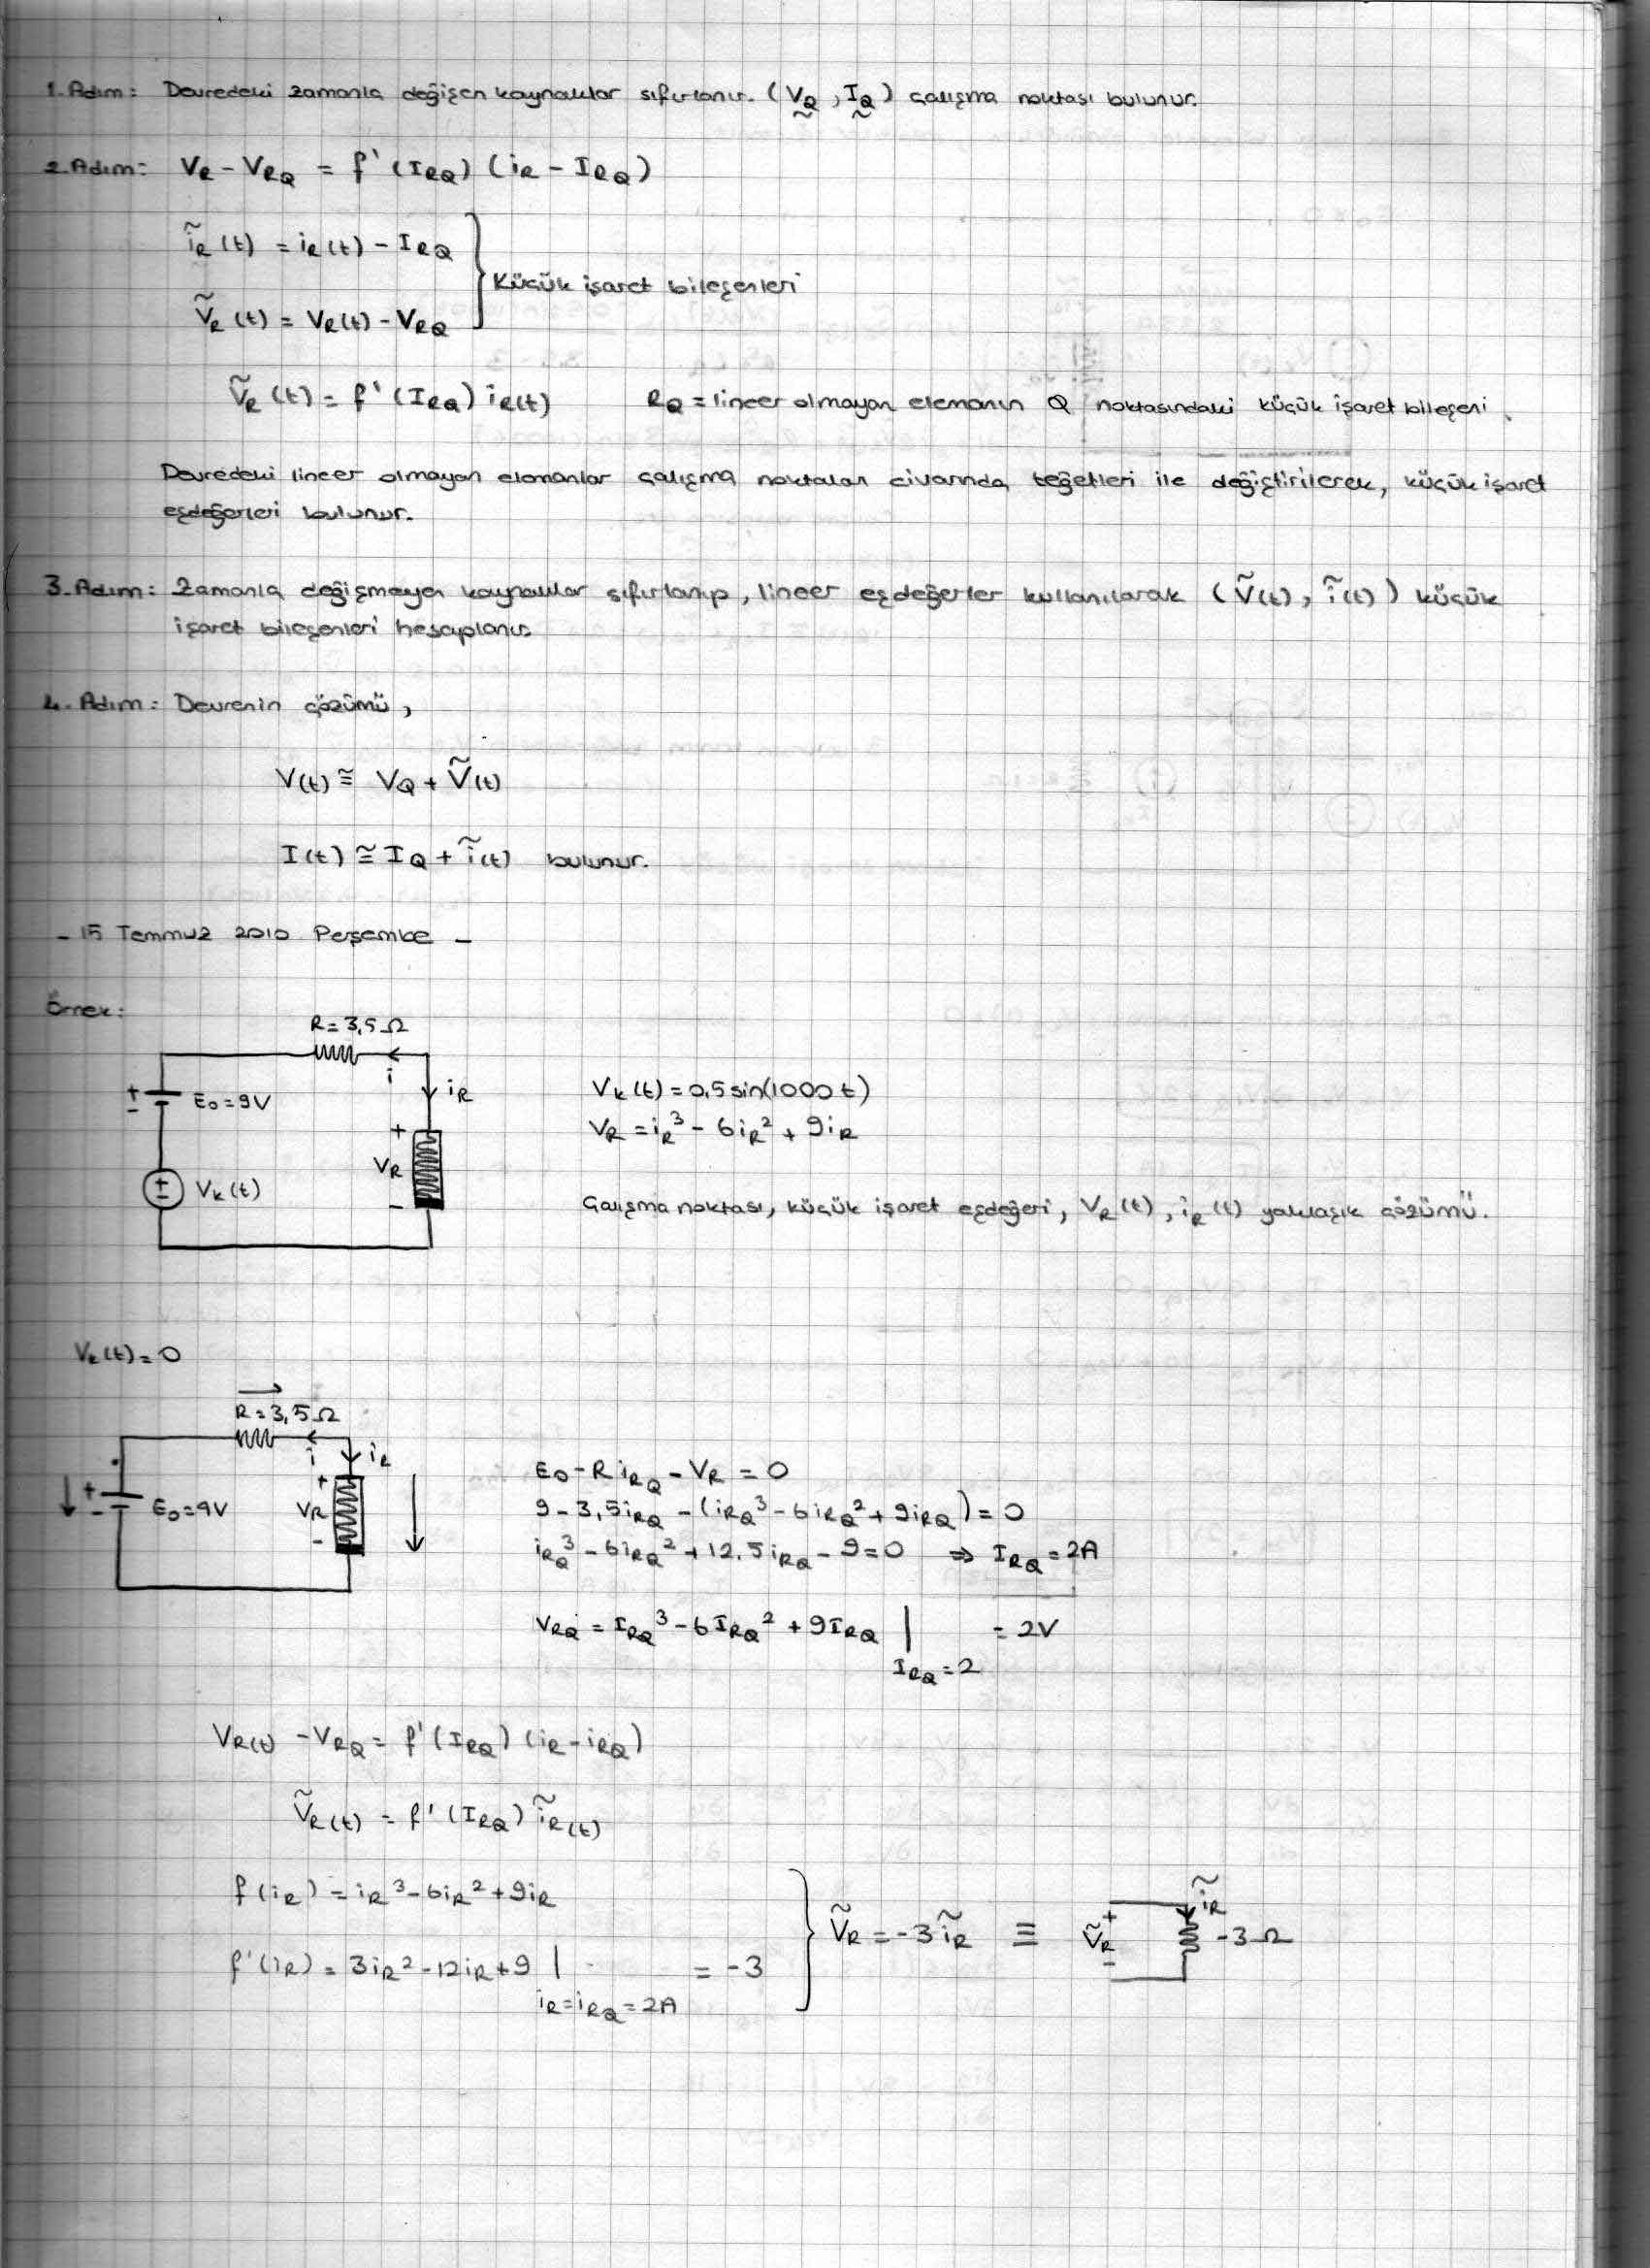 1. Adım: Devredeki zamanla değişen kaynaklar sıfırlanır. (V̰Q, ḬQ) çalışma noktası bulunur.
2. Adım: VR - VRQ = f'(IRQ) (iR - IRQ)
ĩR(t) = iR(t) - IRQ
ṼR(t) = VR(t) - VRQ
Küçük işaret bileşenleri
ṼR(t) = f'(IRQ) iR(t) RQ = lineer olmayan elemanın Q noktasındaki küçük işaret bileşeni.
Devredeki lineer olmayan elemanlar çalışma noktaları civarında teğetleri ile değiştirilerek, küçük işaret
eşdeğerleri bulunur.
3. Adım: Zamanla değişmeyen kaynaklar sıfırlanıp, lineer eşdeğerler kullanılarak (Ṽ(t), ĩ(t)) küçük
işaret bileşenleri hesaplanır.
4. Adım: Devrenin çözümü,
V(t) ≅ VQ + Ṽ(t)
I(t) ≅ IQ + ĩ(t) bulunur.
- 15 Temmuz 2010 Perşembe -
Örnek:
R = 3,5 Ω
i
iR
+ - E0 = 9V
+ VR -
Vk(t)
Vk(t) = 0,5 sin(1000t)
VR = iR³ - 6iR² + 9iR
Çalışma noktası, küçük işaret eşdeğeri, VR(t), iR(t) yaklaşık çözümü.
Vk(t) = 0
R = 3,5 Ω
i
iR
+ - E0 = 9V
+ VR -
E0 - R iRQ - VR = 0
9 - 3,5iRQ - (iRQ³ - 6iRQ² + 9iRQ) = 0
iRQ³ - 6iRQ² + 12,5iRQ - 9 = 0 ⇒ IRQ = 2A
VRQ = IRQ³ - 6IRQ² + 9IRQ | = 2V
IRQ = 2
VR(t) - VRQ = f'(IRQ) (iR - iRQ)
ṼR(t) = f'(IRQ) ĩR(t)
f(iR) = iR³ - 6iR² + 9iR
f'(iR) = 3iR² - 12iR + 9 | = -3
iR = iRQ = 2A
ṼR = -3 ĩR ≡ + ṼR - ĩR -3 Ω